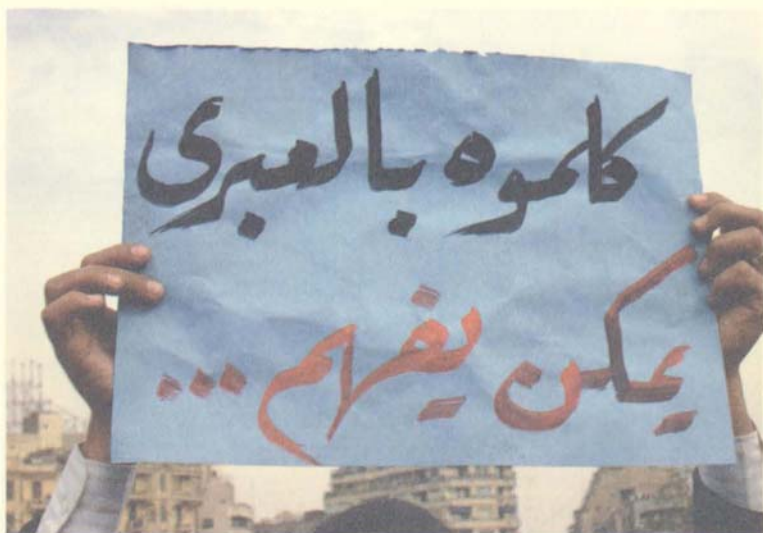 كلموه بالعبرى
يمكن يفهم...